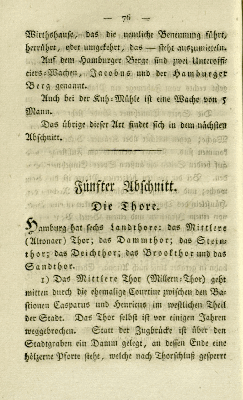 — 76 —
Wirthshause, das die nemliche Benennung führt,
herrühre, oder umgekehrt, das — steht auszumitteln.
Auf dem Hamburger Berge sind zwei Unteroffi-
ciers-Wachen, Jacobus und der Hamburger
Berg genannt.
Auch bei der Kuh-Mühle ist eine Wache von 5
Mann.
Das übrige dieser Art findet sich in dem nächsten
Abschnitt.
Fünfter Abschnitt.
Die Thore.
Hamburg hat sechs Landthore: das Mittlere
(Altonaer) Thor; das Dammthor; das Stein-
thor; das Deichthor; das Brookthor und das
Sandthor.
1) Das Mittlere Thor (Millern-Thor) geht
mitten durch die ehemalige Courtine zwischen den Ba-
stionen Casparus und Henricus im westlichen Theil
der Stadt. Das Thor selbst ist vor einigen Jahren
weggebrochen. Statt der Zugbrücke ist über den
Stadtgraben ein Damm gelegt, an dessen Ende eine
hölzerne Pforte steht, welche nach Thorschluß gesperrt